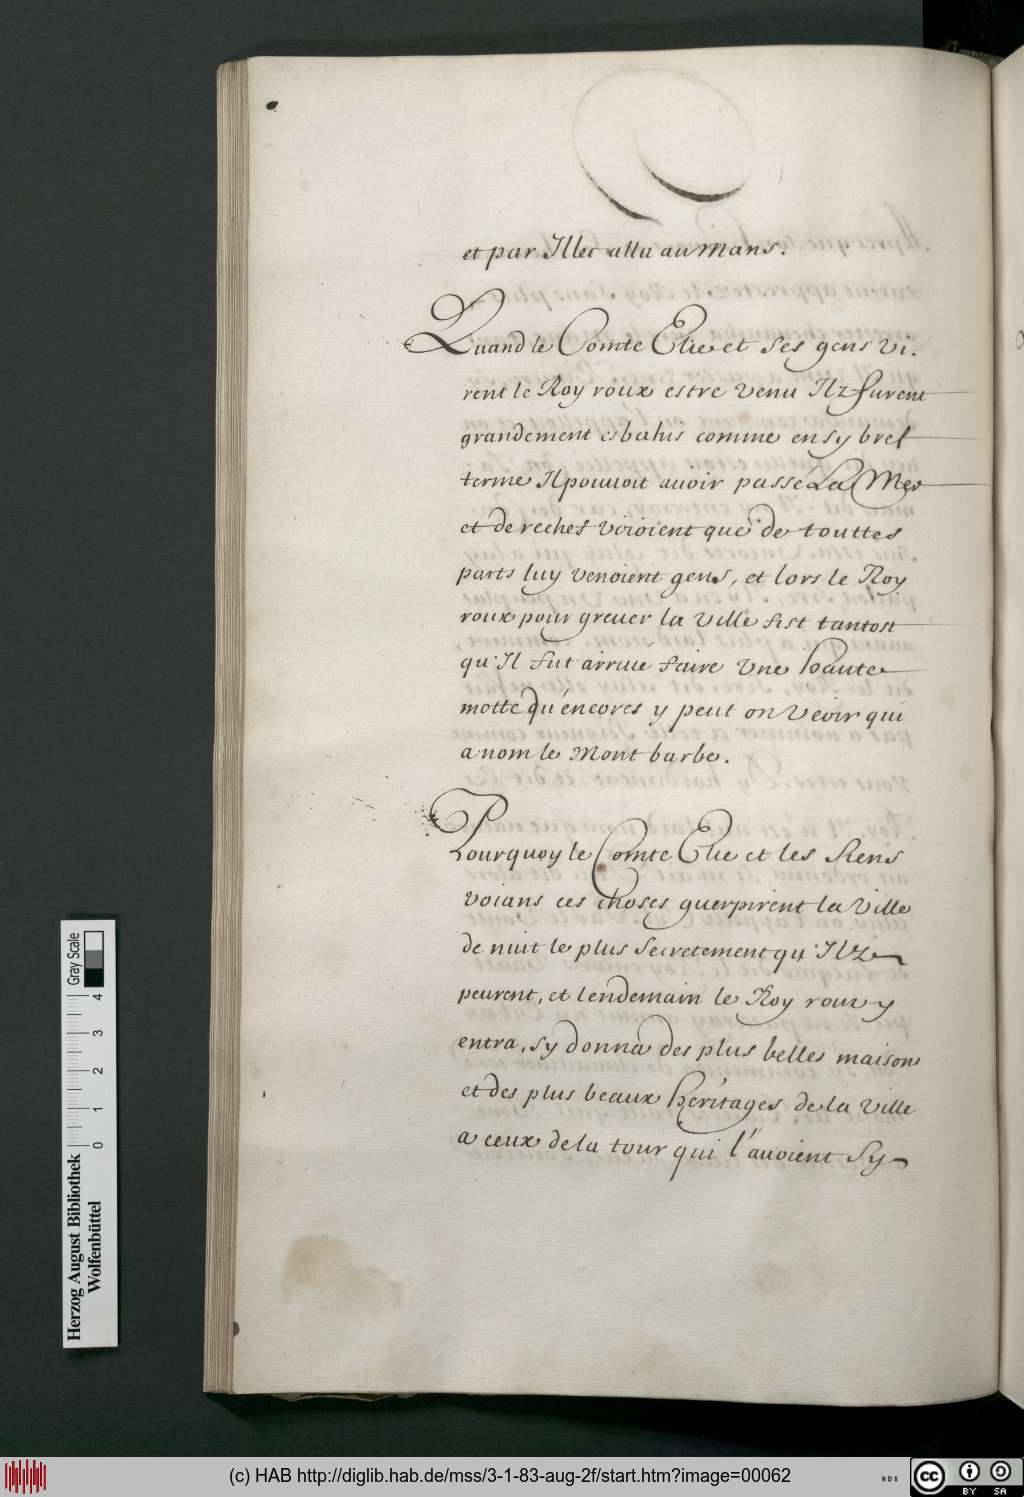 et par Illec alla au Mans.
Quand le Comte Elie et ses gens vi.
rent le Roy roux estre venu Ilz furent
grandement esbahis comme en sy bref
terme Il pouvoit avoir passé La Mer
et de rechef voioient que de touttes
parts luy venoient gens, et lors le Roy
roux pour grever la ville fist tantost
qu'Il fut arrivé faire vne haute
motte qu'encores y peut on veoir qui
a nom le Mont barbe.
Pourquoy le Comte Elie et les siens
voians ces choses guerpirent la ville
de nuit le plus secretement qu'Ilz
peurent, et lendemain le Roy roux y
entra, sy donna des plus belles maisons
et des plus beaux heritages de la ville
a ceux de la tour qui l'avoient sy
Herzog August Bibliothek
Wolfenbüttel
0 1 2 3 4
Gray Scale
(c) HAB http://diglib.hab.de/mss/3-1-83-aug-2f/start.htm?image=00062
WDB
cc BY SA